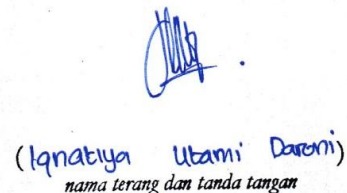 (Ignatiya Utami Daroni)
nama terang dan tanda tangan